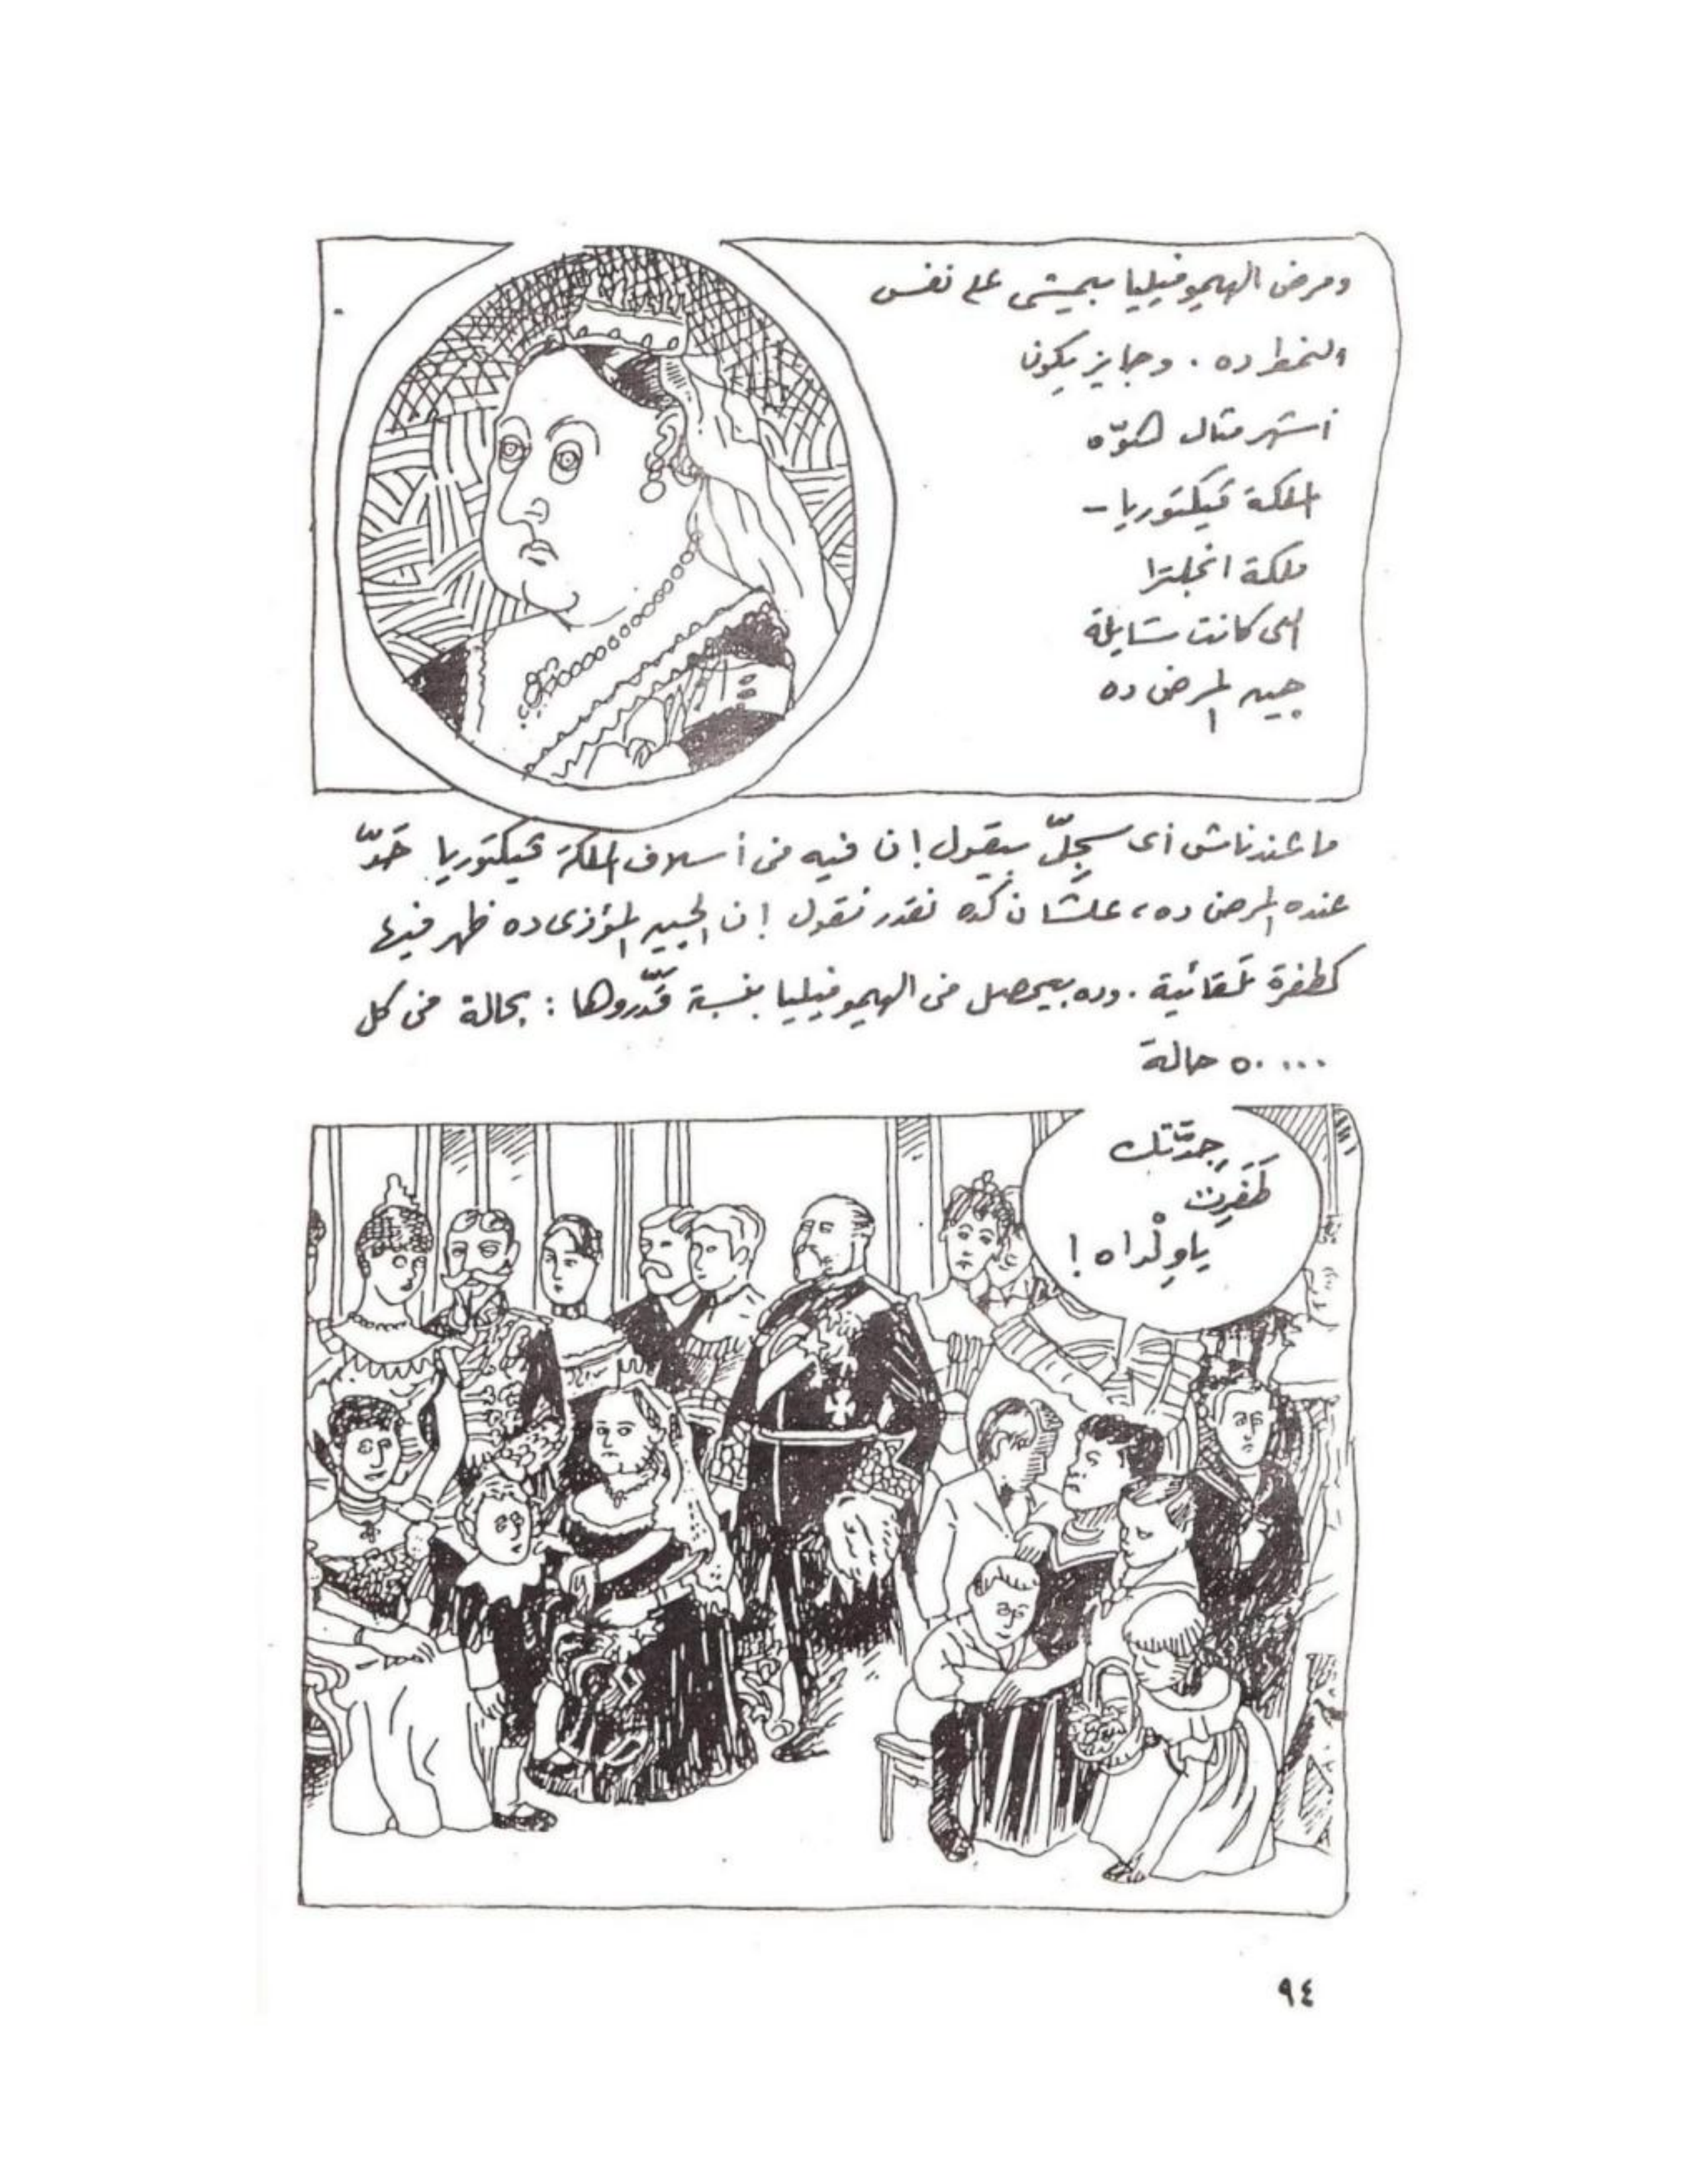 ومرض الهيموفيليا بيمشى على نفس
النمط ده . وجايز يكون
أشهر مثال هُوّه
الملكة ڤيكتوريا -
ملكة انجلترا
اللى كانت شايلة
چين المرض ده
ما عندناش أى سجلّ بيقول إن فيه فى أسلاف الملكة ڤيكتوريا حَدّ
عنده المرض ده، علشان كده نقدر نقول إن الچين المؤذى ده ظهر فيها
كطفرة تلقائية . وده بيحصل فى الهيموفيليا بنسبة قَدّروها : بحالة فى كل
٥٠٠٠٠ حالة
جِدّتك
طَفَرِت
ياوِلْداه !
٩٤